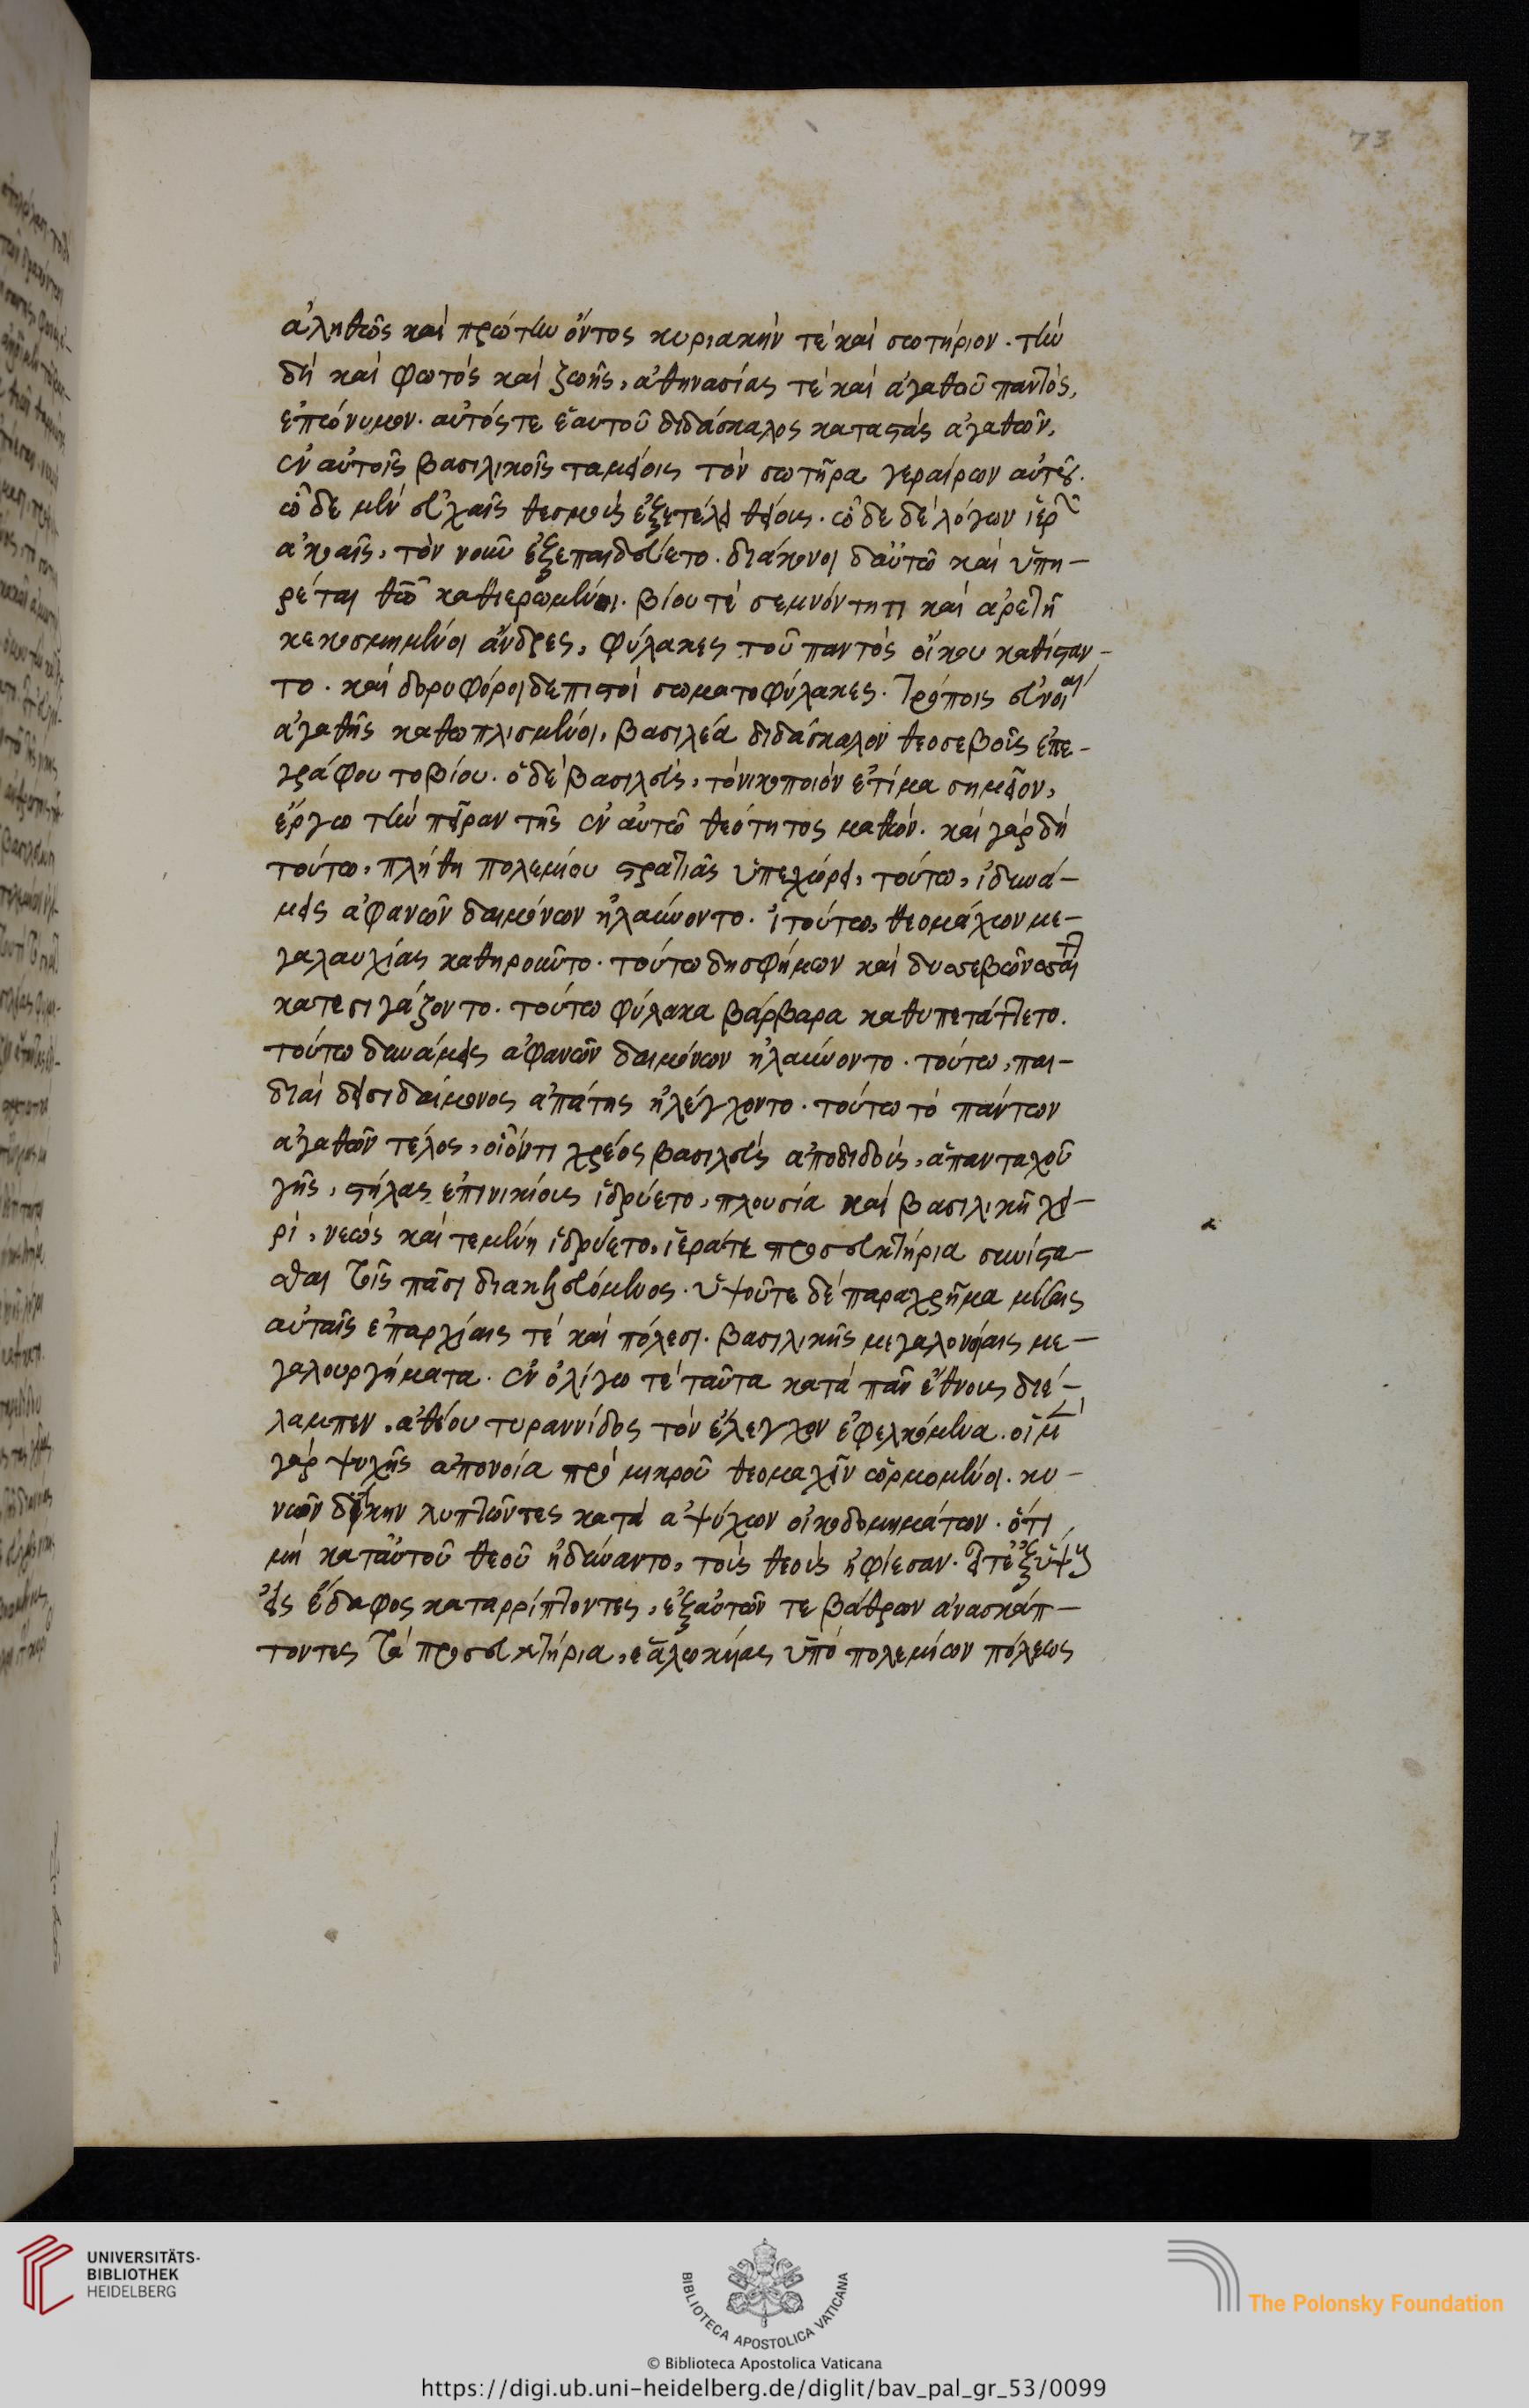 73
ἀληθῶς καὶ πρώτην ὄντος κυριακὴν τὲ καὶ σωτήριον. τὴν
δὴ καὶ φωτὸς καὶ ζωῆς, ἀθηνασίας τὲ καὶ ἀγαθοῦ παντὸς,
ἐπώνυμον. αὐτός τε ἑαυτοῦ διδάσκαλος καταστὰς ἀγαθῶν,
ἐν αὐτοῖς βασιλικοῖς ταμείοις τὸν σωτῆρα γεραίρων αὐτοῦ.
ὧδε μὲν εὐχαῖς θεσμοὺς ἐξετέλει θείους. ὧδε δὲ λόγων ἱερῶν
ἀκοαῖς, τὸν νοῦν ἐξεπαιδεύετο. διάκονοι δ'αὐτῶ καὶ ὑπη-
ρέται θεῶ καθιερωμένοι. βίου τὲ σεμνότητι καὶ ἀρετῆ
κεκοσμημένοι ἄνδρες, φύλακες τοῦ παντὸς οἴκου καθίσταν-
το. καὶ δορυφόροι δὲ πιστοὶ σωματοφύλακες. τρόποις εὐνοίας
ἀγαθῆς καθωπλισμένοι, βασιλέα διδάσκαλον θεοσεβοῦς ἐπε-
γράφου το βίου. ὁ δὲ βασιλεὺς, τὸ νικοποιὸν ἐτίμα σημεῖον,
ἔργω τὴν πεῖραν τῆς ἐν αὐτῶ θεότητος μαθών. καὶ γὰρ δὴ
τούτω, πλήθη πολεμίου στρατιᾶς ὑπεχώρει, τούτω, ἰδυνά-
μεις ἀφανῶν δαιμόνων ἠλαύνοντο. ἰτούτω, θεομάχων με-
γαλαυχίας καθηροῦντο. τούτω δησφήμων καὶ δυσσεβῶν
κατεσιγάζοντο. τούτω φύλακα βάρβαρα καθυπετάττετο.
τούτω δυνάμεις ἀφανῶν δαιμόνων ἠλαύνοντο. τούτω, παι-
διαὶ δεισιδαίμονος ἀπάτης ἠλέγχοντο. τούτω τὸ πάντων
ἀγαθῶν τέλος, οἷόν τι χρέος βασιλεὺς ἀποδιδοὺς, ἁπανταχοῦ
γῆς, στήλας ἐπινικίους ἱδρύετο, πλουσία καὶ βασιλικῆ χει-
ρὶ, νεὼς καὶ τεμένη ἱδρύετο, ἱερά τε προσευκτήρια συνίστα-
σθαι τοῖς πᾶσι διακελευόμενος. ὑψοῦτε δὲ παραχρῆμα μέσαις
αὐταῖς ἐπαρχίαις τὲ καὶ πόλεσι. βασιλικῆς μεγαλονοίαις με-
γαλουργήματα. ἐν ὀλίγω τὲ ταῦτα κατὰ πᾶν ἔθνους διέ-
λαμπεν, ἀθέου τυραννίδος τὸν ἔλεγχον ἐφελκόμενα. οἱ μὲν
γὰρ ψυχῆς ἀπονοία πρὸ μικροῦ θεομαχεῖν ὡρμομένοι. κυ-
νῶν δίκην λυττῶντες κατὰ ἀψύχων οἰκοδομημάτων. ὅτι
μὴ κατ'αὐτοῦ θεοῦ ἠδύναντο, τοὺς θεοὺς ἠφίεσαν.
εἰς ἔδαφος καταρρίπτοντες, ἐξ αὐτῶν τε βάθρων ἀνασκάπ-
τοντες τὰ προσευκτήρια, ἑαλωκυίας ὑπὸ πολεμίων πόλεως
UNIVERSITÄTS-
BIBLIOTHEK
HEIDELBERG
BIBLIOTECA APOSTOLICA VATICANA
The Polonsky Foundation
© Biblioteca Apostolica Vaticana
https://digi.ub.uni-heidelberg.de/diglit/bav_pal_gr_53/0099